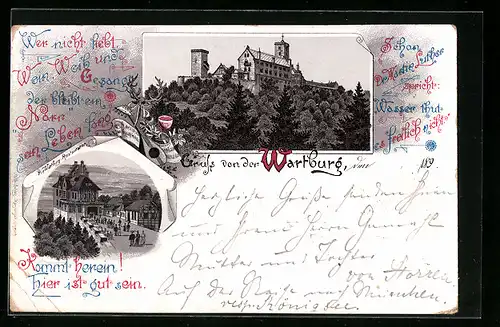 Wer nicht liebt
Wein Weib und
Gesang
der bleibt ein
Narr
sein Leben lang
Schon
Doktor Luther
spricht:
Wasser thut
es freilich nicht"
Gruss von der Wartburg, den 189
Kommt herein!
hier ist gut sein.
Herzliche Grüße senden Ihnen
und Ihrer Frau Gemahl
Mutter und Tochter
von
Auf der Reise nach München.
resp. Königsee.